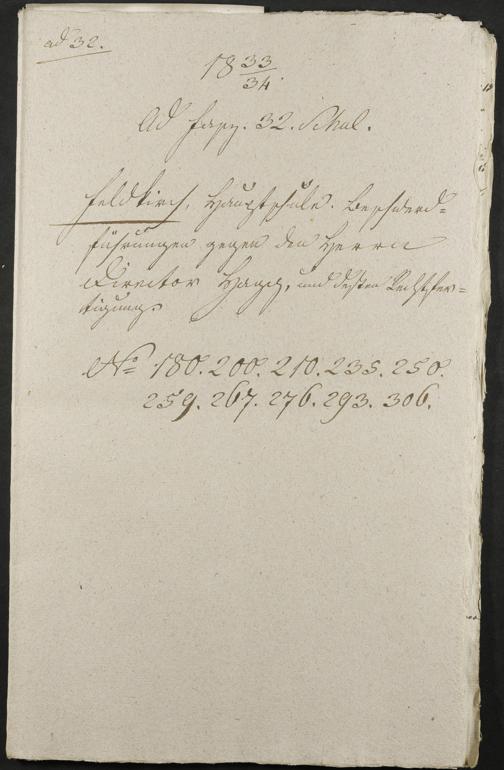 ad 32.
18 33/34.
Ad fasz. 32. Schul.
Feldkirch, Hauptschule. Beschwerd=
führungen gegen den Herrn
Director, und dessen Rechtfer=
tigung.
No 180. 200. 210. 235. 250.
259. 267. 276. 293. 306.